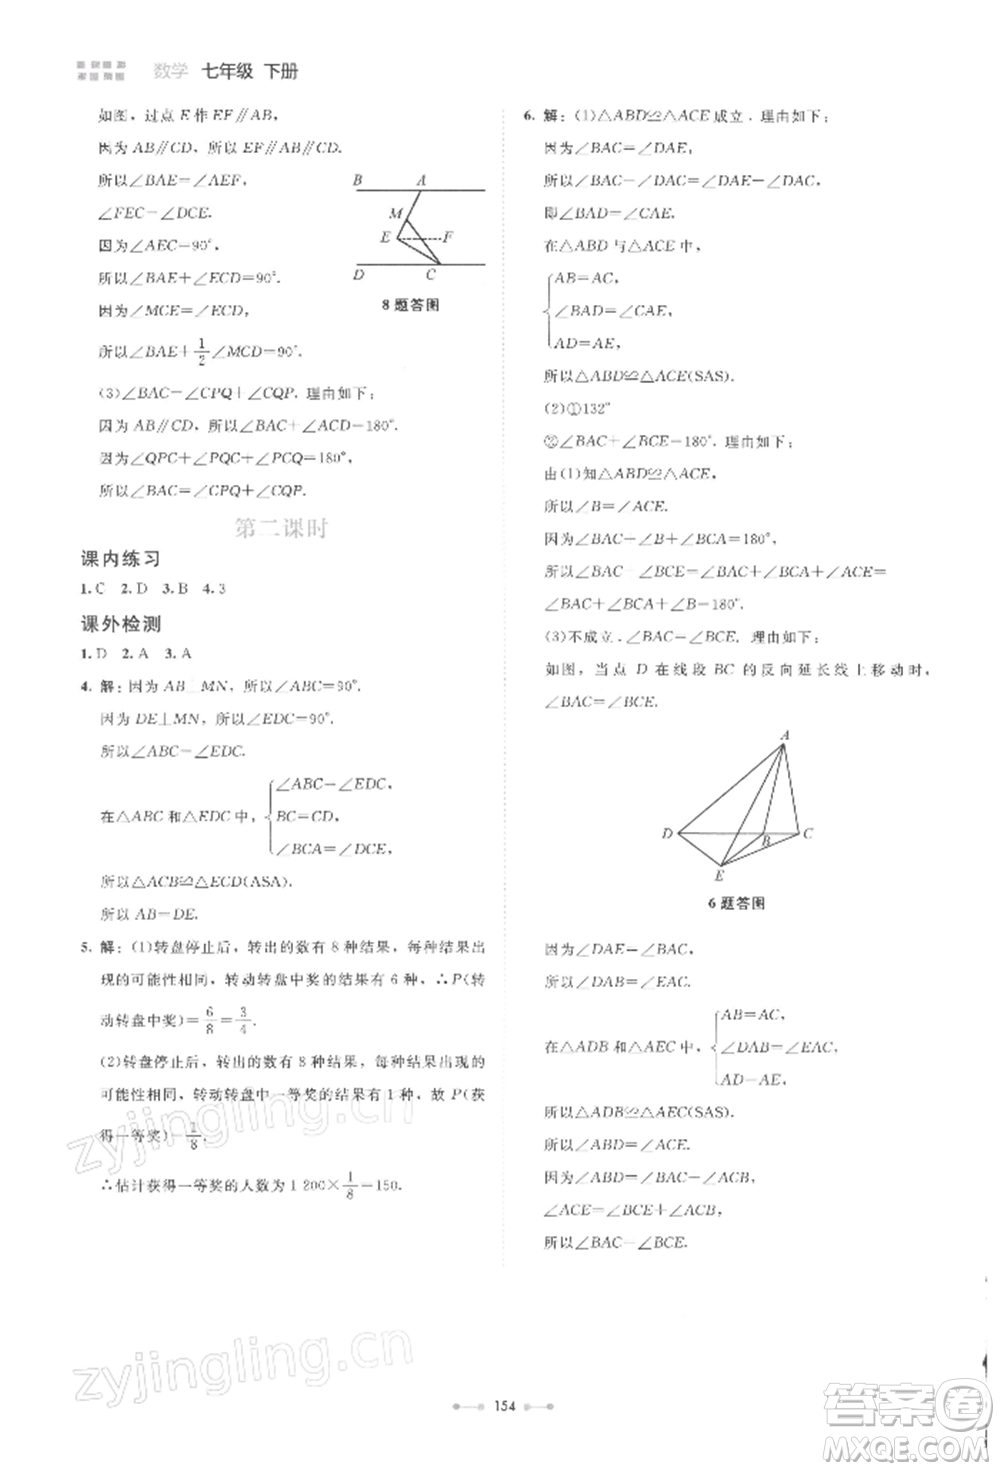 数学 七年级 下册
如图，过点 E 作 EF∥AB，
因为 AB∥CD，所以 EF∥AB∥CD.
所以∠BAE=∠AEF，
∠FEC=∠DCE.
因为∠AEC=90°，
所以∠BAE+∠ECD=90°.
因为∠MCE=∠ECD，
所以∠BAE+1/2∠MCD=90°.
B A M E F D C
8 题答图
(3)∠BAC=∠CPQ+∠CQP. 理由如下：
因为 AB∥CD，所以∠BAC+∠ACD=180°.
因为∠QPC+∠CQP+∠PCQ=180°，
所以∠BAC=∠CPQ+∠CQP.
第二课时
课内练习
1.C 2.D 3.B 4.3
课外检测
1.D 2.A 3.A
4. 解：因为 AB⊥MN，所以∠ABC=90°.
因为 DE⊥MN，所以∠EDC=90°.
所以∠ABC=∠EDC.
在△ABC 和△EDC 中，
∠ABC=∠EDC，
BC=CD，
∠BCA=∠DCE，
所以△ACB≌△ECD(ASA).
所以 AB=DE.
5. 解：(1)转盘停止后，转出的数有 8 种结果，每种结果出
现的可能性相同，转动转盘中奖的结果有 6 种，∴P(转
动转盘中奖)=6/8=3/4.
(2)转盘停止后，转出的数有 8 种结果，每种结果出现的
可能性相同，转动转盘中一等奖的结果有 1 种，故 P(获
得一等奖)=1/8.
∴估计获得一等奖的人数为 1 200×1/8=150.
6. 解：(1)△ABD≌△ACE 成立. 理由如下：
因为∠BAC=∠DAE，
所以∠BAC−∠DAC=∠DAE−∠DAC，
即∠BAD=∠CAE.
在△ABD 与△ACE 中，
AB=AC，
∠BAD=∠CAE，
AD=AE，
所以△ABD≌△ACE(SAS).
(2)①132°
②∠BAC+∠BCE=180°. 理由如下：
由(1)知△ABD≌△ACE，
所以∠B=∠ACE.
因为∠BAC+∠B+∠ACB=180°，
所以∠BAC+∠BCE=∠BAC+∠BCA+∠ACE=
∠BAC+∠BCA+∠B=180°.
(3)不成立. ∠BAC=∠BCE. 理由如下：
如图，当点 D 在线段 BC 的反向延长线上移动时，
∠BAC=∠BCE.
A D B C E
6 题答图
因为∠DAE=∠BAC，
所以∠DAB=∠EAC.
在△ADB 和△AEC 中，
AB=AC，
∠DAB=∠EAC，
AD=AE，
所以△ADB≌△AEC(SAS).
所以∠ABD=∠ACE.
因为∠ABD=∠BAC+∠ACB，
∠ACE=∠BCE+∠ACB，
所以∠BAC=∠BCE.
zyjingling.cn
zyjingling.cn
答案圈
MXQE.COM
154